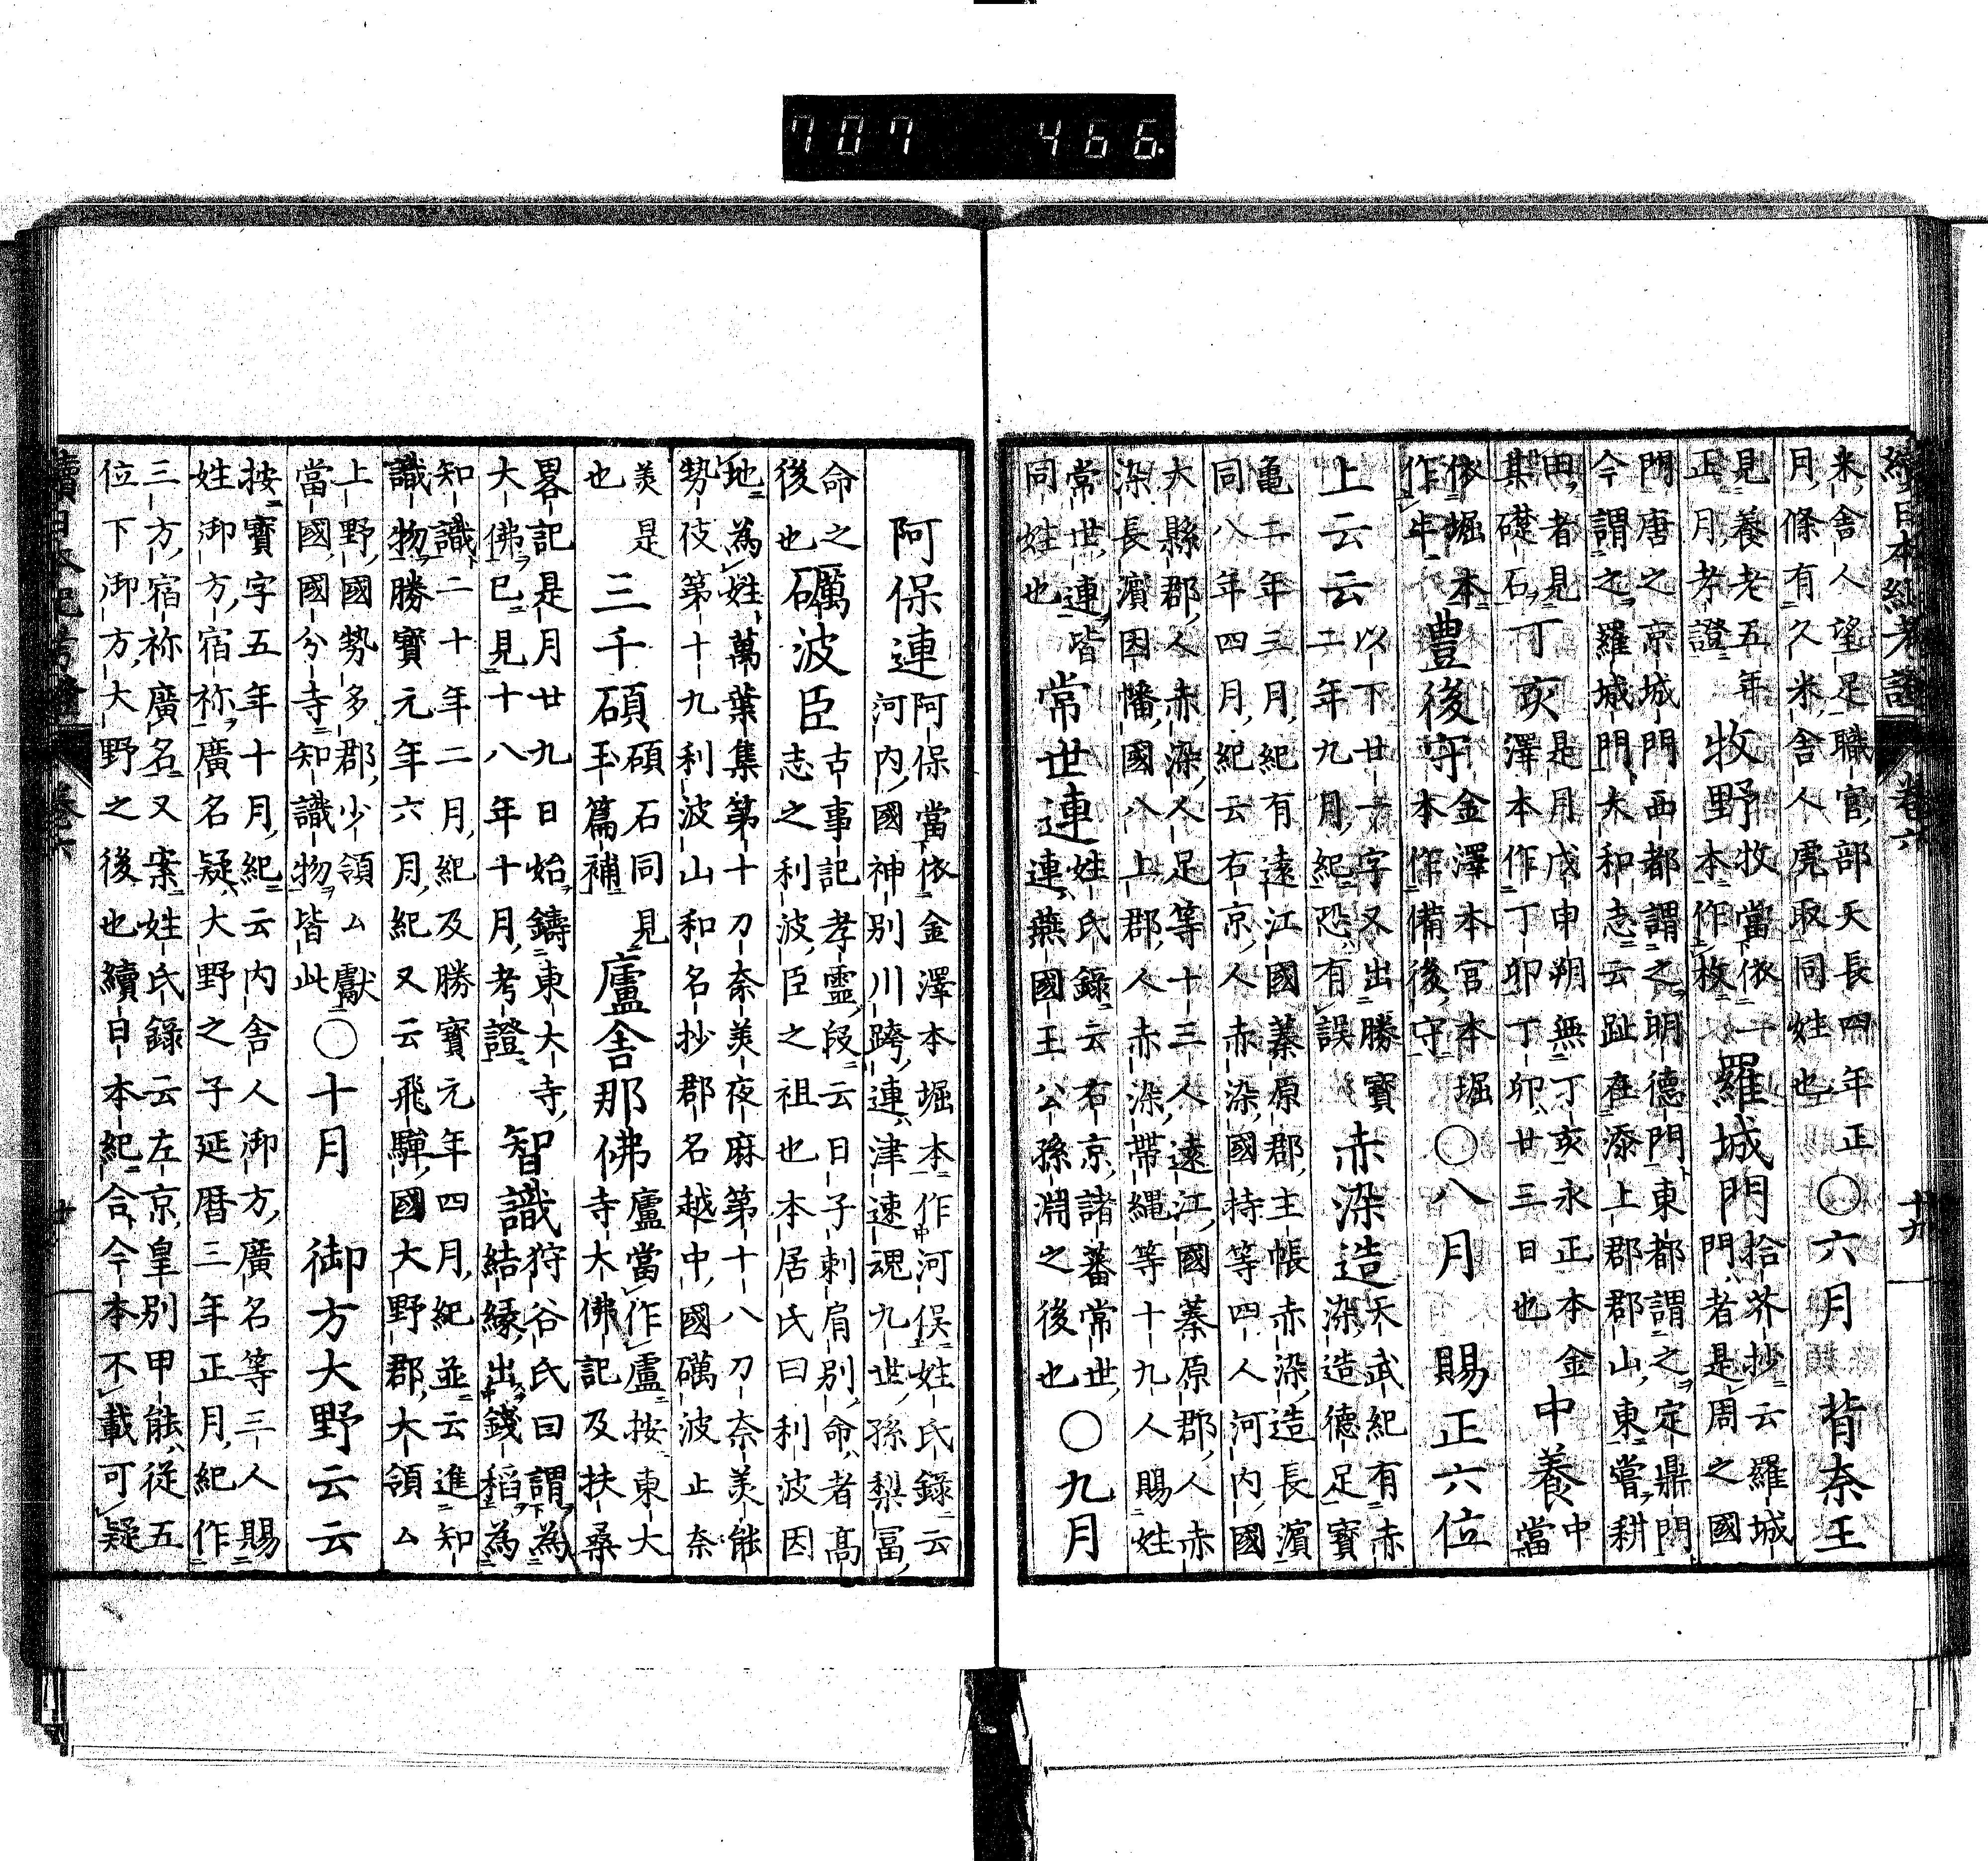 707 466.
續日本紀考證 卷六 十九
米舍人望足職官部天長四年正
月條有久米舍人虎取同姓也〇六月 背奈王
見養老五年
正月考證 牧野牧當依一
本作枚羅城門拾芥抄云羅城
門者是周之國
門唐之京城門西都謂之明德門東都謂之定鼎門
今謂之羅城門大和志云趾在添上郡郡山東嘗耕
田者見
其礎石丁亥是月戊申朔無丁亥永正本金
澤本作丁卯丁卯廿三日也中養中
當
依堀本
作牛豊後守金澤本宮本堀
本作備後守〇八月 賜正六位
上云云以下廿一字又出勝寶
二年九月紀恐有誤赤染造天武紀有赤
染造德足寶
龜二年三月紀有遠江國蓁原郡主帳赤染造長濵
同八年四月紀云右京人赤染國持等四人河内國
大縣郡人赤染人足等十三人遠江國蓁原郡人赤
染長濵因幡國八上郡人赤染帶縄等十九人賜姓
常世連皆
同姓也常世連姓氏錄云右京諸蕃常世
連燕國王公孫淵之後也〇九月
阿保連阿保當依金澤本堀本作河俣姓氏錄云
河内國神別川跨連津速魂九世孫梨冨
命之
後也礪波臣古事記孝靈段云日子刺肩別命者髙
志之利波臣之祖也本居氏曰利波因
地為姓萬葉集第十刀奈美夜麻第十八刀奈美能
勢伎第十九利波山和名抄郡名越中國礪波止奈
美是
也三千碩碩石同見
玉篇補廬舍那佛廬當作盧按東大
寺大佛記及扶桑
畧記是月廿九日始鑄東大寺
大佛已見十八年十月考證智識狩谷氏曰謂為
結緣出錢稻為
知識二十年二月紀及勝寶元年四月紀並云進知
識物勝寶元年六月紀又云飛驒國大野郡大領ム
上野國勢多郡少領ム獻
當國國分寺知識物皆此〇十月 御方大野云云
按寶字五年十月紀云内舍人御方廣名等三人賜
姓御方宿祢廣名疑大野之子延暦三年正月紀作
三方宿祢廣名又案姓氏錄云左京皇別甲能從五
位下御方大野之後也續日本紀合今本不載可疑
續日本紀考證 卷六